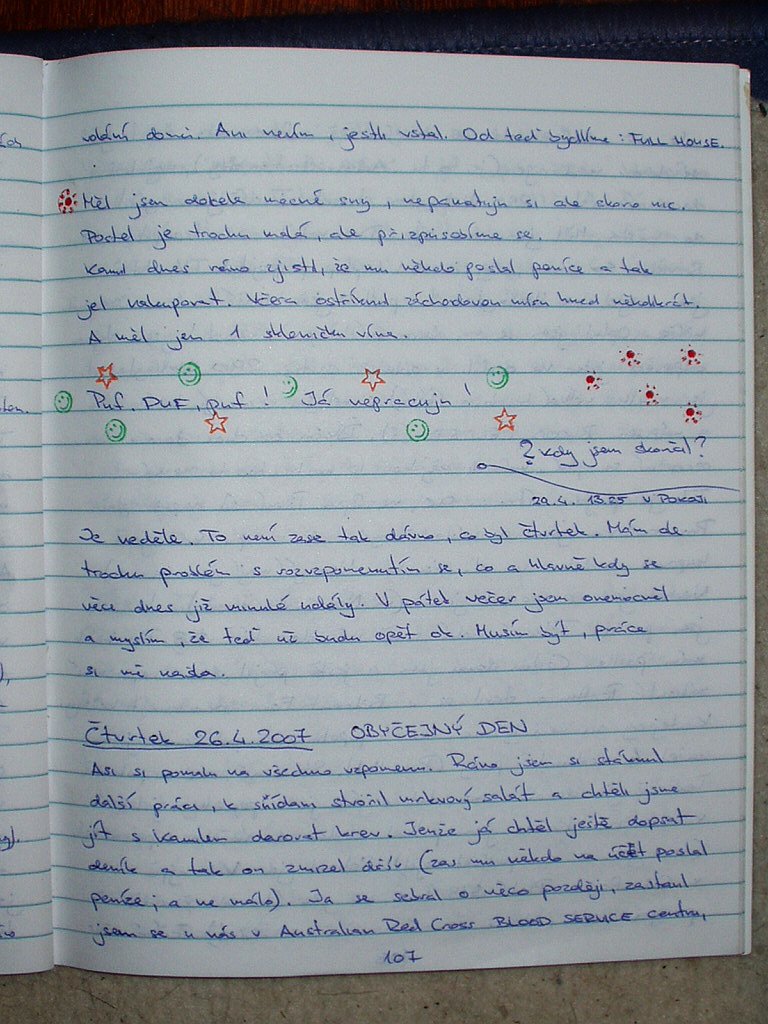 volání domů. Ani nevím, jestli vstal. Od teď bydlíme: FULL HOUSE.
Měl jsem docela mocné sny, nepamatuju si ale skoro nic.
Postel je trochu malá, ale přizpůsobíme se.
Kamil dnes ráno zjistil, že mu někdo poslal peníze a tak
jel nakupovat. Včera ostříknul záchodovou mísu hned několikrát.
A měl jen 1 skleničku vína.
Puf, PUF, puf! Já nepracuju!
? kdy jsem skončil?
29.4. 13.25 V POKOJI
Je neděle. To není zase tak dávno, co byl čtvrtek. Mám ale
trochu problém s rozvzpomenutím se, co a hlavně kdy se
věci dnes již minulé udály. V pátek večer jsem onemocněl
a myslím, že teď už budu opět ok. Musím být, práce
si mě našla.
Čtvrtek 26.4.2007 OBYČEJNÝ DEN
Asi si pomalu na všechno vzpomenu. Ráno jsem si stáhnul
další práci, k snídani stvořil mrkvový salát a chtěli jsme
jít s Kamilem darovat krev. Jenže já chtěl ještě dopsat
deník a tak on zmizel dřív (zas mu někdo na účet poslal
peníze; a ne málo). Já se sebral o něco později, zastavil
jsem se u nás v Australian Red Cross BLOOD SERVICE centru,
107